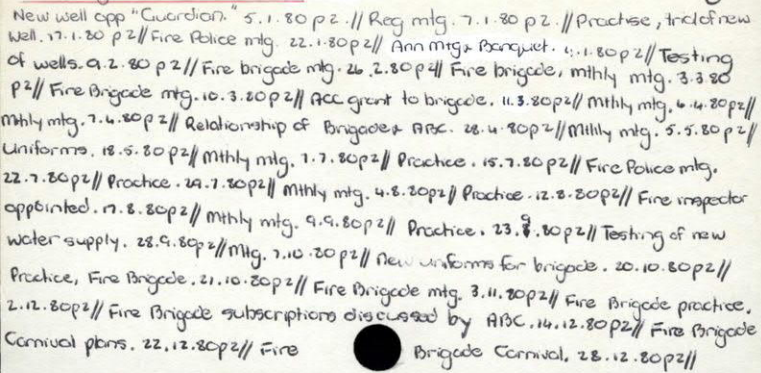 New well opp "Guardian." 5.1.80 p2.// Reg mtg. 7.1.80 p2.// Practise, trial of new
well. 17.1.80 p2// Fire Police mtg. 22.1.80p2// Ann mtg & Banquet. 1.80p2// Testing
of wells. 9.2.80 p2// Fire brigade mtg. 26.2.80p4// Fire brigade, mthly mtg. 3.3.80
p2// Fire Brigade mtg. 10.3.80p2// ACC grant to brigade. 11.3.80p2// Mthly mtg. 4.4.80p2//
Mthly mtg. 7.4.80p2// Relationship of Brigade & ABC. 28.4.80p2// Mthly mtg. 5.5.80p2//
Uniforms. 18.5.80p2// Mthly mtg. 7.7.80p2// Practice. 15.7.80p2// Fire Police mtg.
22.7.80p2// Practice. 29.7.80p2// Mthly mtg. 4.8.80p2// Practice. 12.8.80p2// Fire inspector
appointed. 17.8.80p2// Mthly mtg. 9.9.80p2// Practice. 23.9.80p2// Testing of new
water supply. 28.9.80p2// Mtg. 7.10.80p2// New uniforms for brigade. 20.10.80p2//
Practice, Fire Brigade. 21.10.80p2// Fire Brigade mtg. 3.11.80p2// Fire Brigade practice.
2.12.80p2// Fire Brigade subscriptions discussed by ABC. 14.12.80p2// Fire Brigade
Carnival plans. 22.12.80p2// Fire Brigade Carnival. 28.12.80p2//